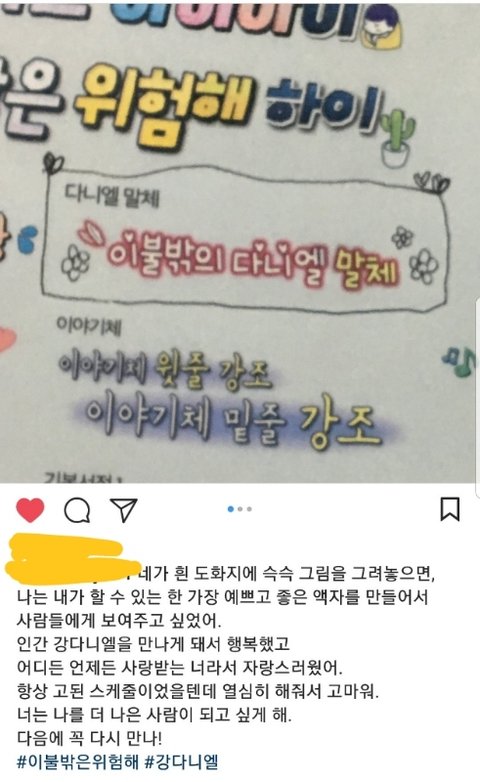 은 위험해 하이
다니엘 말체
이불밖의 다니엘 말체
이야기체
이야기체 윗줄 강조
이야기체 밑줄 강조
네가 흰 도화지에 슥슥 그림을 그려놓으면,
나는 내가 할 수 있는 한 가장 예쁘고 좋은 액자를 만들어서
사람들에게 보여주고 싶었어.
인간 강다니엘을 만나게 돼서 행복했고
어디든 언제든 사랑받는 너라서 자랑스러웠어.
항상 고된 스케줄이었을텐데 열심히 해줘서 고마워.
너는 나를 더 나은 사람이 되고 싶게 해.
다음에 꼭 다시 만나!
#이불밖은위험해 #강다니엘